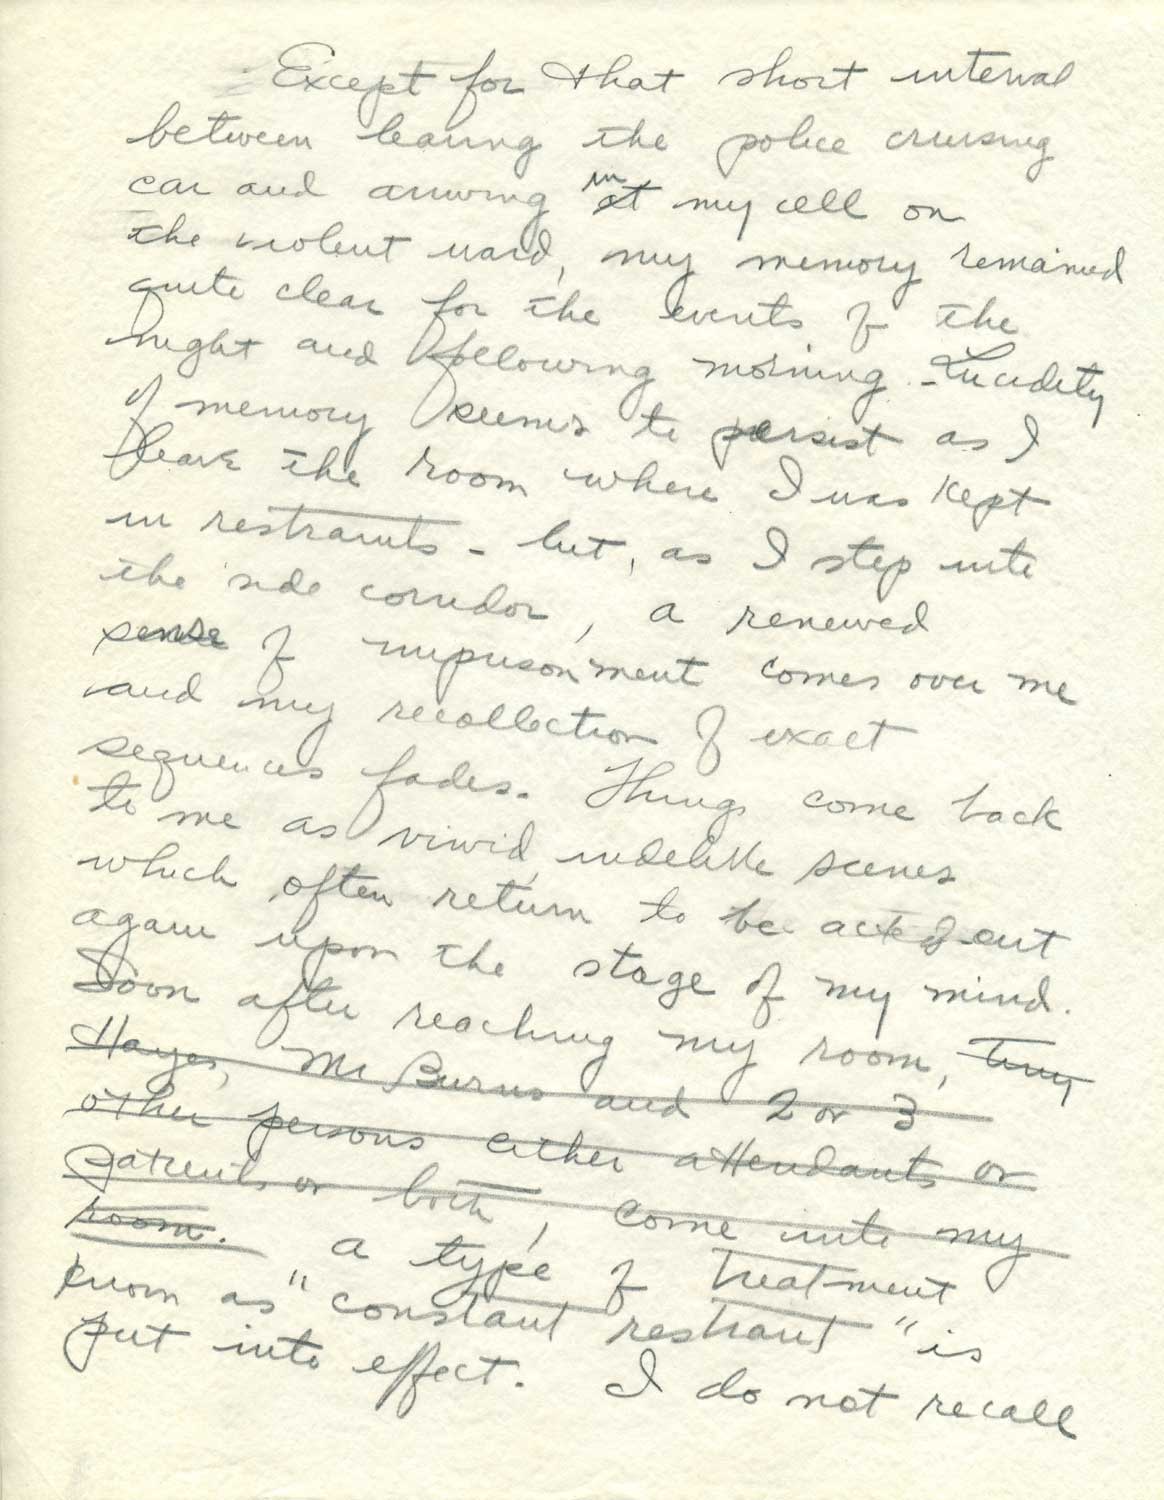 Except for that short interval
between leaving the police cruising
car and arriving in at my cell on
the violent ward, my memory remained
quite clear for the events of the
night and following morning - Lucidity
of memory seems to persist as I
leave the room where I was kept
in restraints - but, as I step into
the side corridor, a renewed
sense of imprisonment comes over me
and my recollection of exact
sequences fades. Things come back
to me as vivid, indelible scenes
which often return to be acted out
again upon the stage of my mind.
Soon after reaching my room,
Hayes, Mr Burns and 2 or 3
other persons either attendants or
patients or both, come into my
room. a type of treatment
known as "constant restraint" is
put into effect. I do not recall